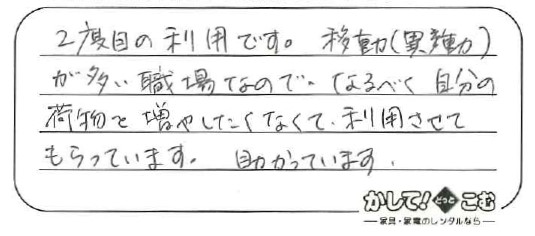 2度目の利用です。移動(異動)
が多い職場なので、なるべく自分の
荷物を増やしたくなくて、利用させて
もらっています。助かっています.
かして!どっとこむ
家具・家電のレンタルなら